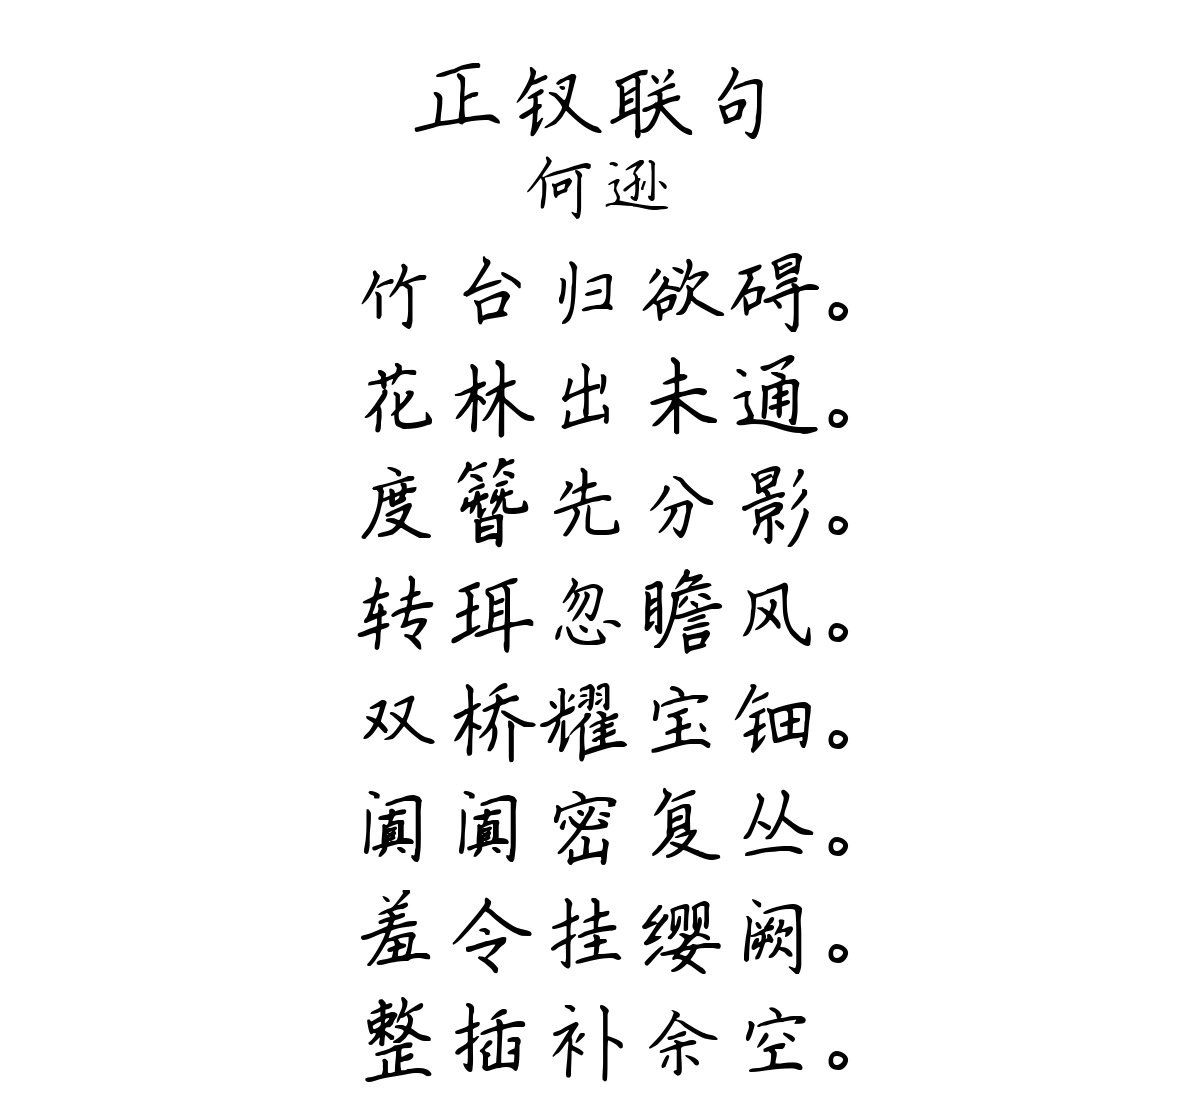 正钗联句
何逊
竹台归欲碍。
花林出未通。
度簪先分影。
转珥忽瞻风。
双桥耀宝钿。
阗阗密复丛。
羞令挂缨阙。
整插补余空。